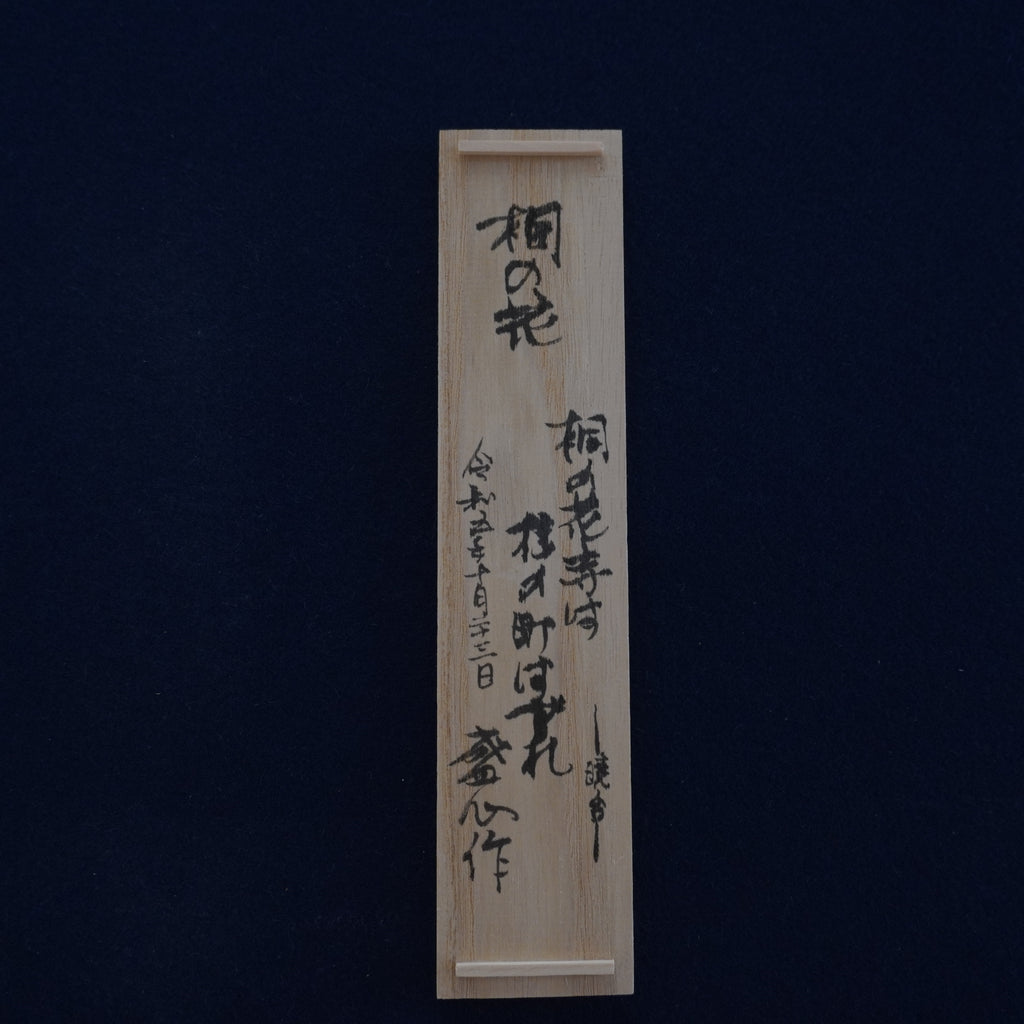 桐の花
桐の花寺は
桂の町はづれ
暁台
令和五年十月二十三日
盛心作